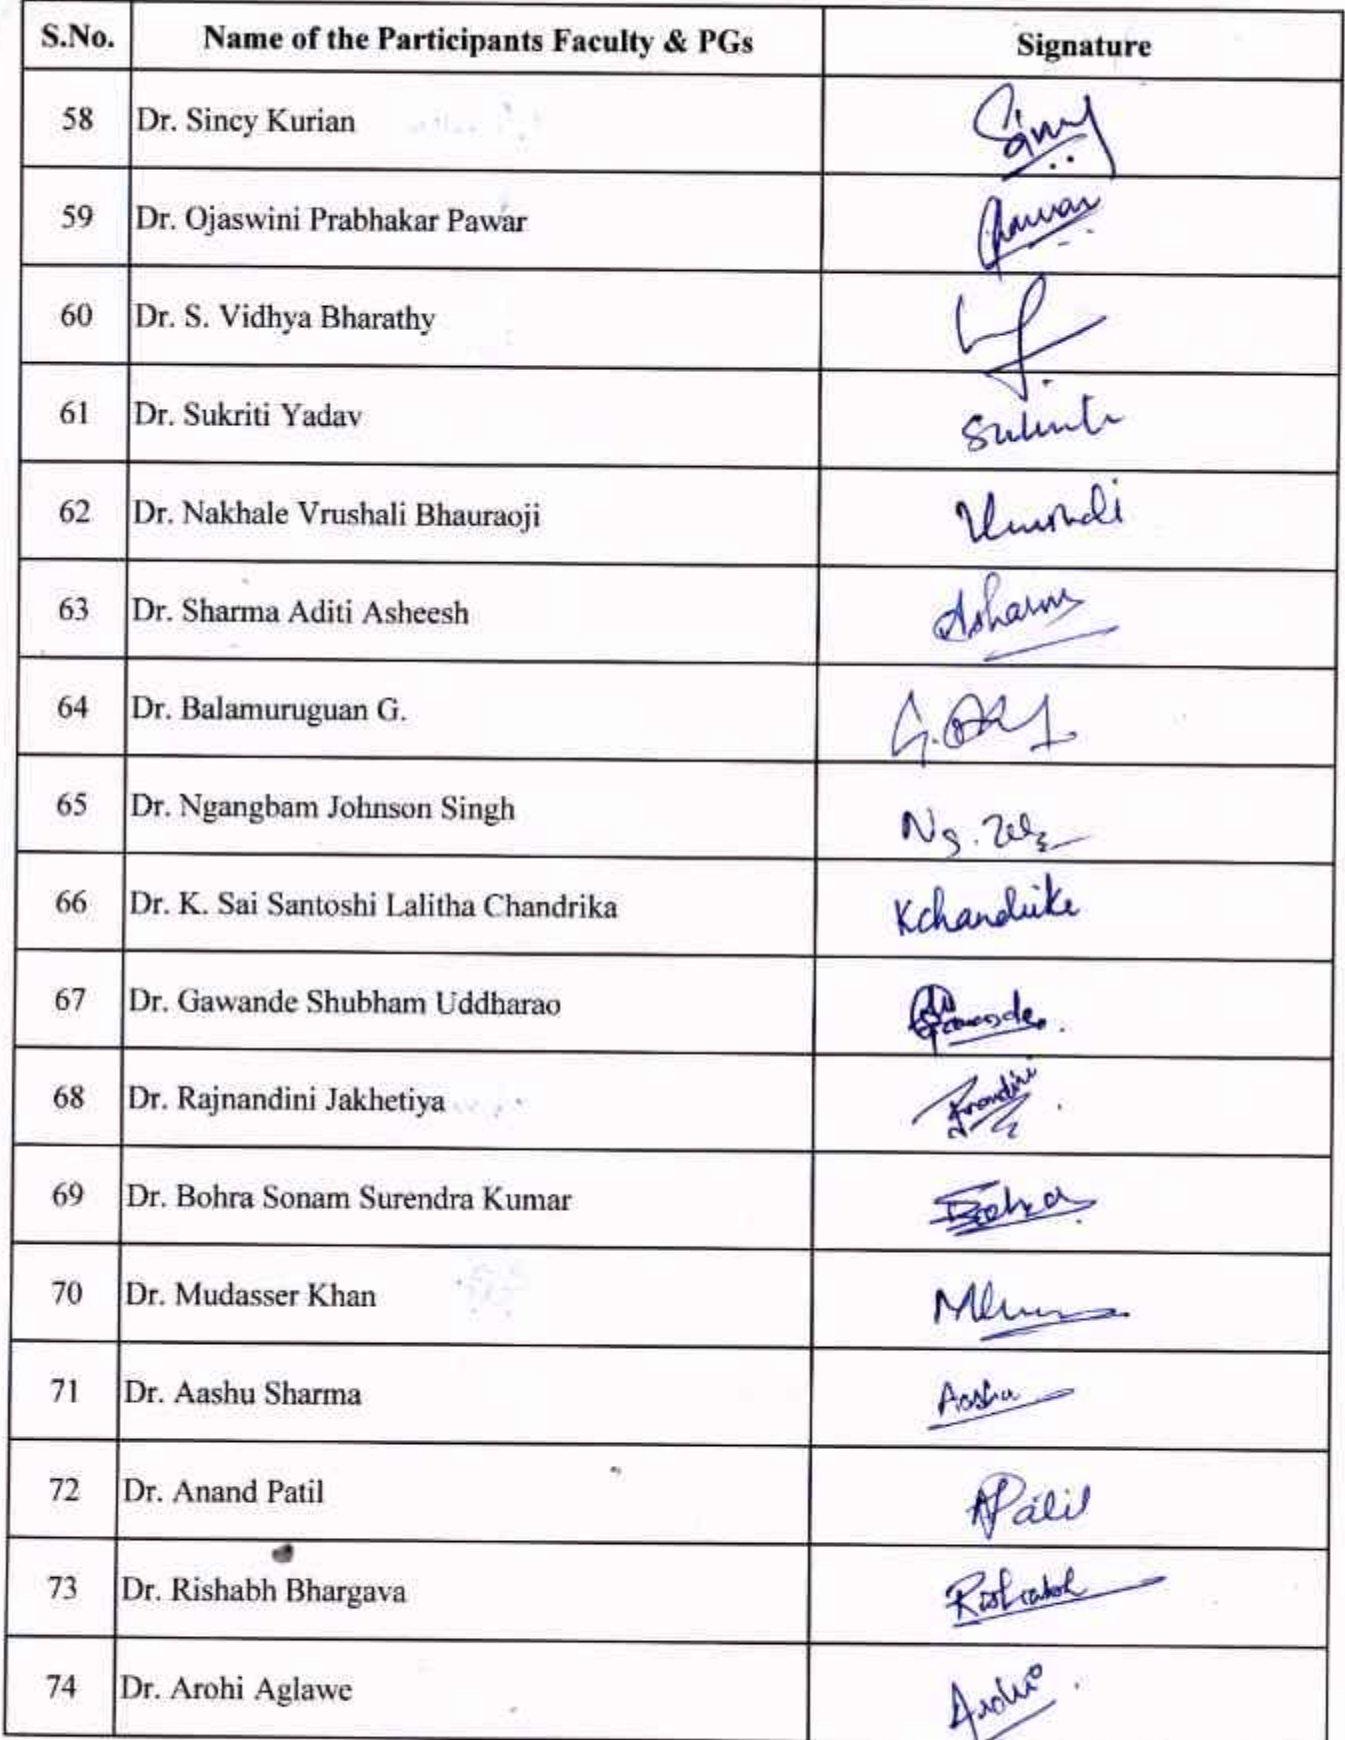 S.No. Name of the Participants Faculty & PGs Signature
58 Dr. Sincy Kurian Sincy
59 Dr. Ojaswini Prabhakar Pawar Pawar
60 Dr. S. Vidhya Bharathy
61 Dr. Sukriti Yadav Sukriti
62 Dr. Nakhale Vrushali Bhauraoji Vrushali
63 Dr. Sharma Aditi Asheesh Asharma
64 Dr. Balamuruguan G.
65 Dr. Ngangbam Johnson Singh Ng.
66 Dr. K. Sai Santoshi Lalitha Chandrika Kchandrika
67 Dr. Gawande Shubham Uddharao Gawande
68 Dr. Rajnandini Jakhetiya
69 Dr. Bohra Sonam Surendra Kumar Bohra
70 Dr. Mudasser Khan
71 Dr. Aashu Sharma Aashu
72 Dr. Anand Patil APatil
73 Dr. Rishabh Bhargava Rishabh
74 Dr. Arohi Aglawe Arohi